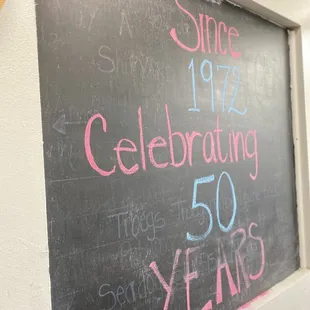 Since
1972
Celebrating
50
YEARS